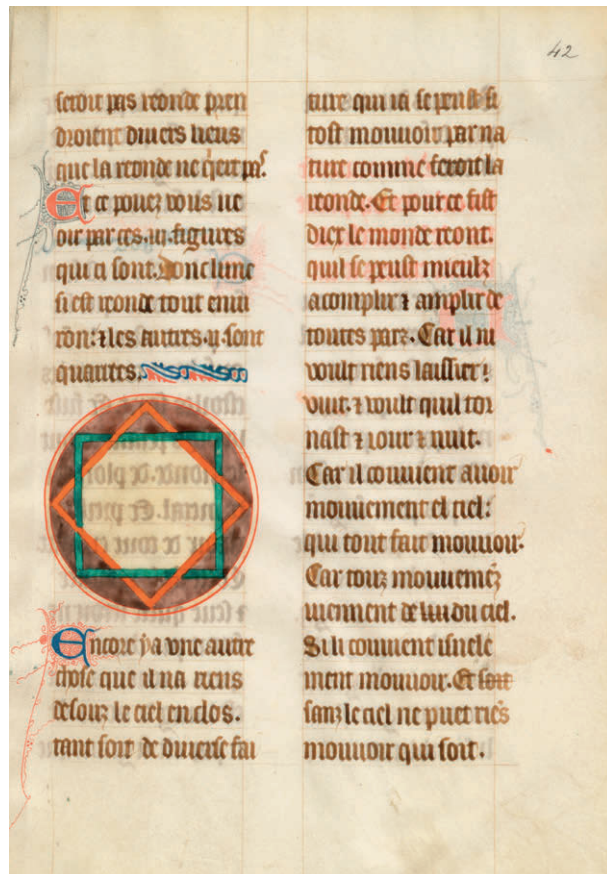 42
seroit pas reonde pren
droient diuers lieus
que la reonde ne q̄ert pas.
Et ce pouez vous ue
oir par ces .iij. figures
qui ci sont. Donc lune
si est reonde tout enui
ron: ⁊ les autres .ij. sont
quarrees.
Encore y a vne autre
chose que il na riens
desouz le ciel enclos.
tant soit de diuerse fai
ture qui ia se peust si
tost mouuoir par na
ture comme feroit la
reonde. Et pour ce fist
diex le monde reont.
quil se peust mieulz
acomplir ⁊ amplir de
toutes parz. Car il ni
voult riens laissier
vuit. ⁊ voult quil tor
nast ⁊ iour ⁊ nuit.
Car il conuient auoir
mouuement el ciel:
qui tout fait mouuoir.
Car touz mouuemēz
viennent de lui du ciel.
Si li conuient isnele
ment mouuoir. Et soit
sanz le ciel ne puet riēs
mouuoir qui soit.